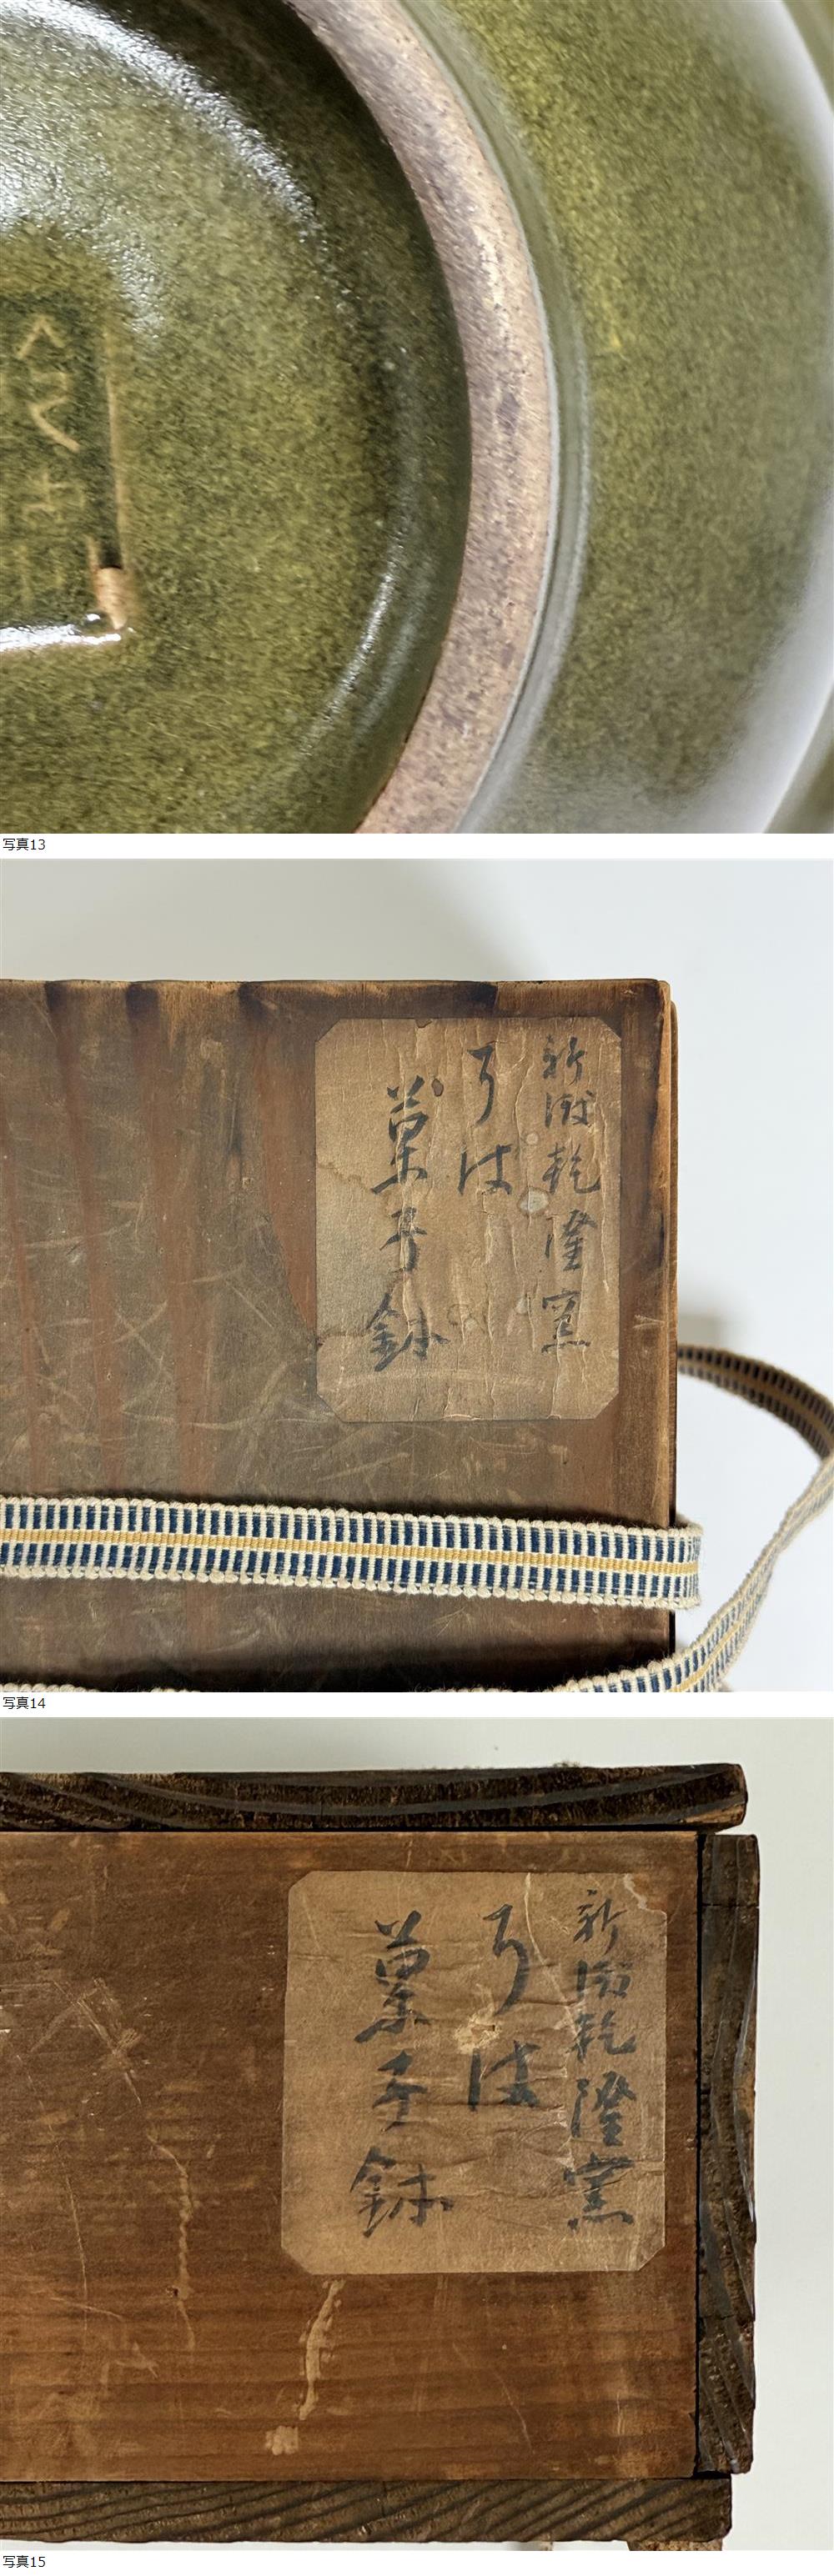 写真13
新渡乾隆窯
菓子鉢
写真14
新渡乾隆窯
菓子鉢
写真15